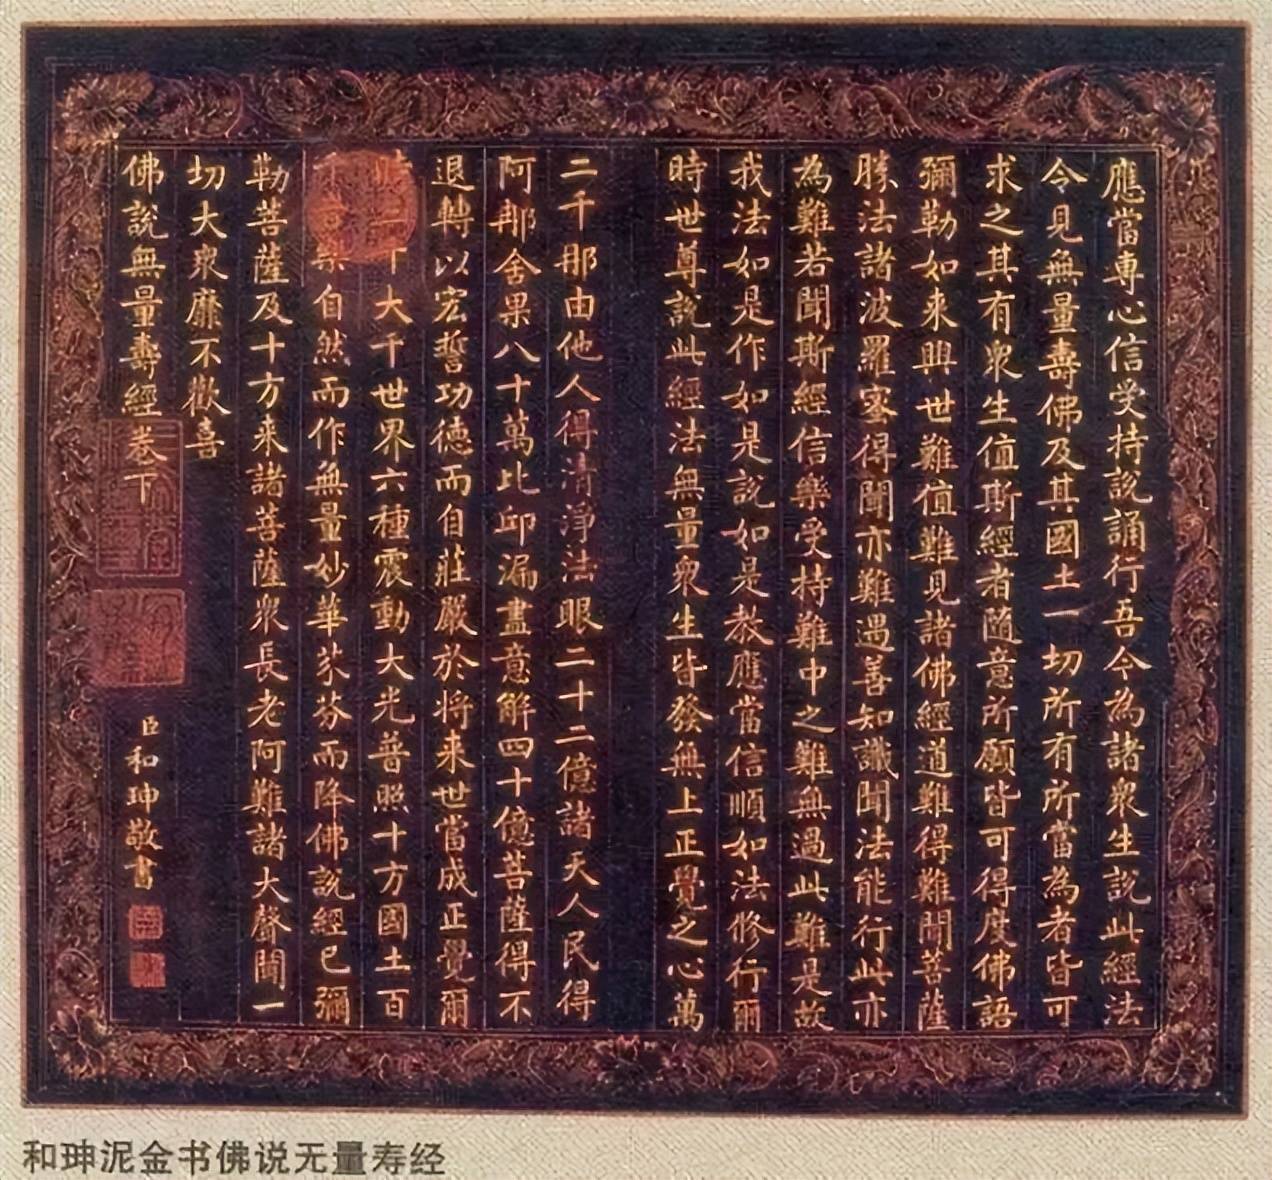 應當專心信受持說誦行吾今為諸衆生說此經法
令見無量壽佛及其國土一切所有所當為者皆可
求之其有衆生值斯經者隨意所願皆可得度佛語
彌勒如来興世難值難見諸佛經道難得難聞菩薩
勝法諸波羅蜜得聞亦難遇善知識聞法能行此亦
為難若聞斯經信樂受持難中之難無過此難是故
我法如是作如是說如是教應當信順如法修行爾
時世尊說此經法無量衆生皆發無上正覺之心萬
二千那由他人得清淨法眼二十二億諸天人民得
阿那含果八十萬比邱漏盡意解四十億菩薩得不
退轉以宏誓功德而自莊嚴於将来世當成正覺爾
時三千大千世界六種震動大光普照十方國土百
千音樂自然而作無量妙華芬芬而降佛說經已彌
勒菩薩及十方来諸菩薩衆長老阿難諸大聲聞一
切大衆靡不歡喜
佛說無量壽經卷下
臣和珅敬書
和珅泥金书佛说无量寿经